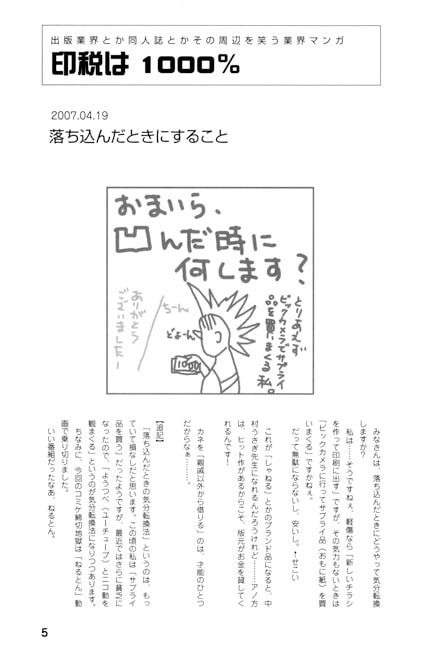 出版業界とか同人誌とかその周辺を笑う業界マンガ
印税は 1000%
2007.04.19
落ち込んだときにすること
おまいら、
凹んだ時に
何します？
とりあえず
ビックカメラでサプライ
品を買いまくる私。
ちーん
どよーん
1000
ありがとう
ございましたー
みなさんは、落ち込んだときにどうやって気分転換
しますか？
私は……そうですねぇ、軽傷なら「新しいチラシ
を作って印刷に出す」ですが、その気力もないときは
「ビックカメラに行ってサプライ品（おもに紙）を買
いまくる」ですかねぇ。
だって無駄にならないし、安いし。↑せこい
これが「しゃねる」とかのブランド品になると、中
村うさぎ先生になれるんだろうけれど………アノ方
は、ヒット作があるからこそ、版元がお金を貸してく
れるんです！
カネを「親戚以外から借りる」のは、才能のひとつ
だからなぁ……。
【追記】
「落ち込んだときの気分転換法」というのは、もっ
ていて損なしだと思います。この頃の私は「サプライ
品を買う」だったようですが、最近ではさらに貧乏に
なったので、「ようつべ（ユーチューブ）とニコ動を
観まくる」というのが気分転換法になりつつあります。
ちなみに、今回のコミケ締切地獄は「ねるとん」動
画で乗り切りました。
いい番組だったなあ、ねるとん。
5